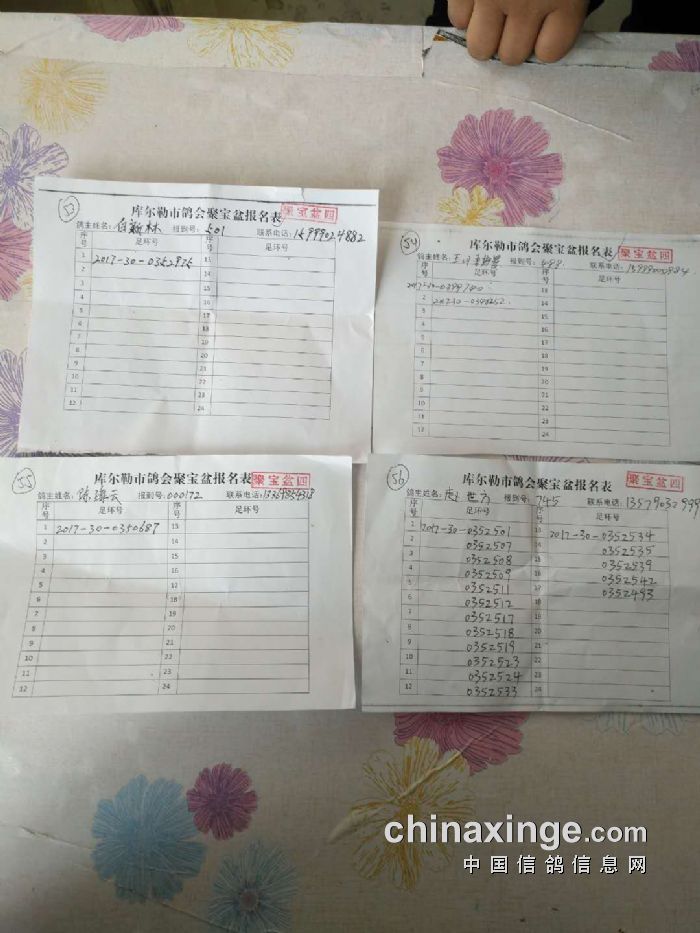 53
库尔勒市鸽会聚宝盆报名表 聚宝盆四
鸽主姓名: 林 报到号: 501 联系电话: 15999024882
序号 足环号 序号 足环号
1 13
2 14
3 15
4 16
5 17
6 18
7 19
8 20
9 21
10 22
11 23
12 24
54
库尔勒市鸽会聚宝盆报名表 聚宝盆四
鸽主姓名: 报到号: 联系电话:
序号 足环号 序号 足环号
55
库尔勒市鸽会聚宝盆报名表 聚宝盆四
鸽主姓名: 报到号: 000172 联系电话:
序号 足环号 序号 足环号
1 2017-30-0350687 13
2 14
3 15
4 16
5 17
6 18
7 19
8 20
9 21
10 22
11 23
12 24
56
库尔勒市鸽会聚宝盆报名表 聚宝盆四
鸽主姓名: 世方 报到号: 745 联系电话: 13579030999
序号 足环号 序号 足环号
1 2017-30-0352501 13 2017-30-0352534
2 0352507 14 0352535
3 0352508 15 0352539
4 0352509 16 0352542
5 0352511 17 0352493
6 0352512 18
7 0352517 19
8 0352518 20
9 0352519 21
10 0352523 22
11 0352524 23
12 0352533 24
chinaxinge.com
中国信鸽信息网